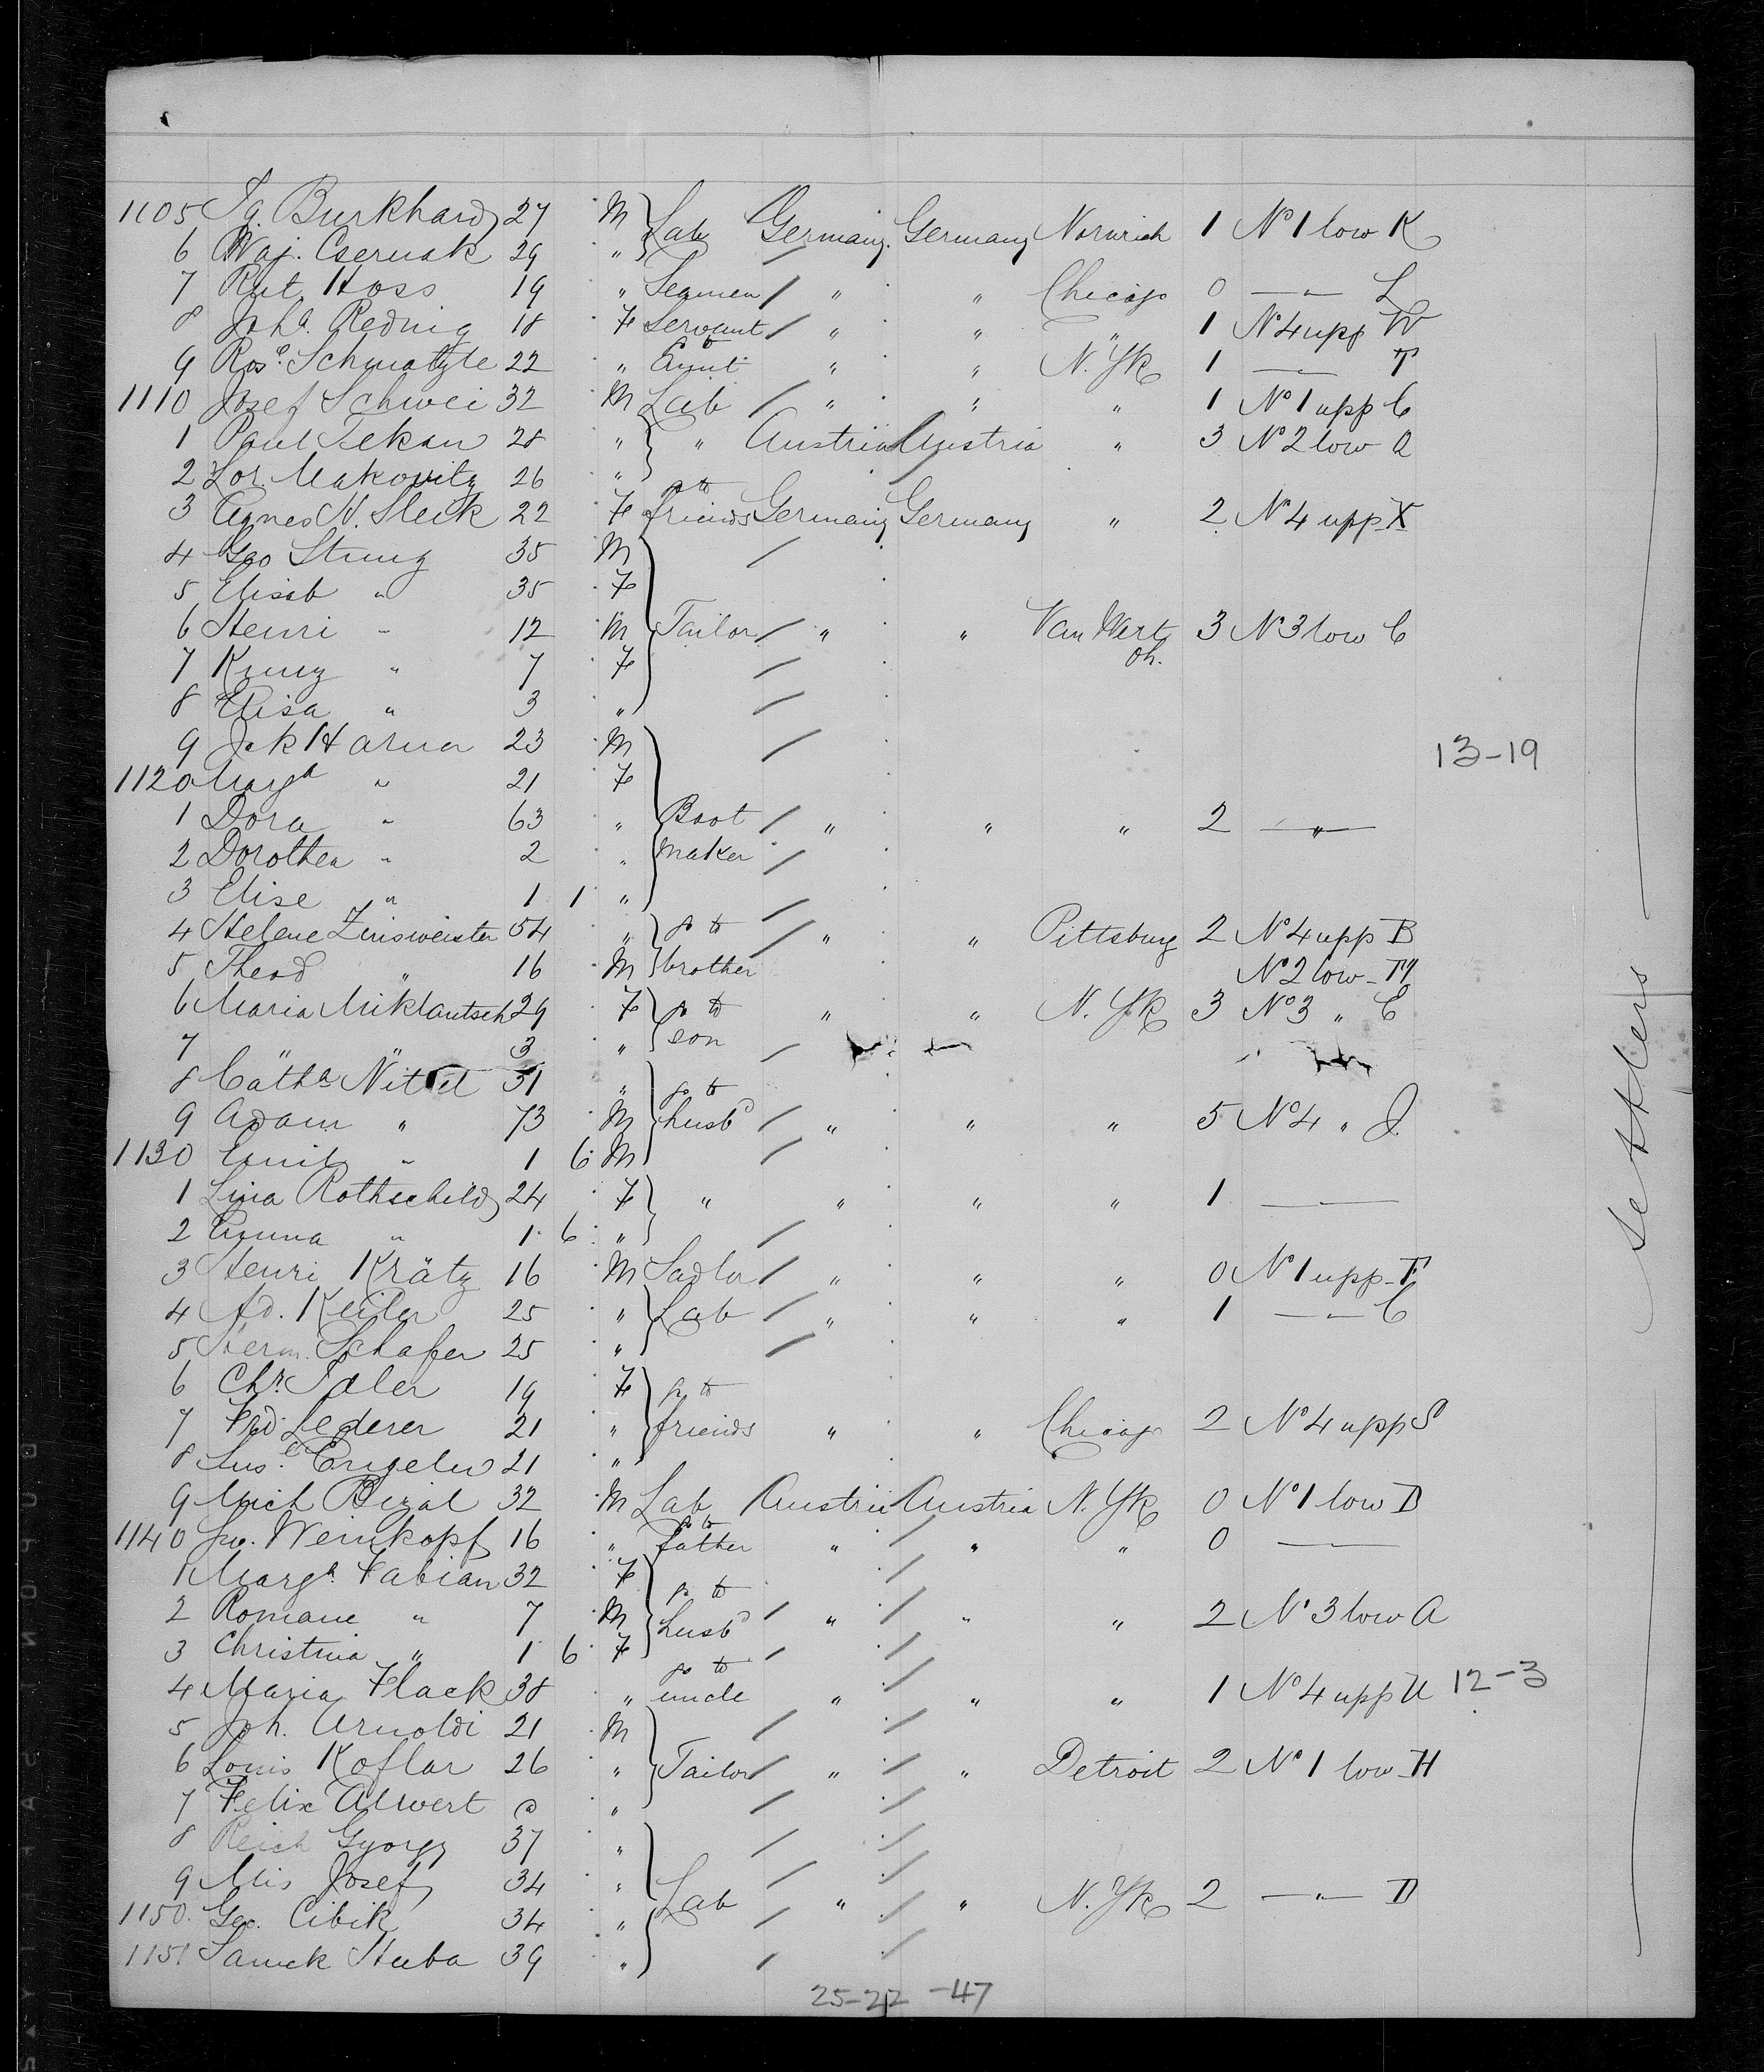 1105 Ig. Burkhard 27 M Lab Germany Germany Norwich 1 No 1 low K
6 Waj. Csernak 29 "
7 Rut. Hoss 19 " Seamen " " Chicago 0 —"— L
8 Joha. Rednig 18 F Servant " " " 1 No 4 upp W
9 Rose. 22 " to Aunt " " N. Yk 1 —"— T
1110 Josef Schwei 32 M Lab " " " 1 No 1 upp C
1 Paul Tekan 28 " " Austria Austria " 3 No 2 low Q
2 Lor. Makovitz 26 "
3 Agnes N. Sleik 22 F go to friends Germany Germany " 2 No 4 upp X
4 Geo Stung 35 M
5 Elisab " 35 F
6 Henri " 12 M Tailor " " Van Wert Oh. 3 No 3 low C
7 " 7 F
8 Elisa " 3 "
9 Jak Harner 23 M
13-19
1120 Marga " 21 F
1 Dora " 63 " Boot " " " 2 —"—
2 Dorothea " 2 " maker
3 Elise " 1 1 "
4 Helene Zinsweister 54 " go to " " Pittsburg 2 No 4 upp B
5 Theod " 16 M brother No 2 low M
6 Maria Miklautsch 29 F go to " " N. Yk 3 No 3 " E
7 " " 3 " son
8 Catha 31 " go to
9 Adam " 73 M husbd " " " 5 No 4 " J.
1130 Emil " 1 6 M
1 Lina Rothschild 24 F " " " " 1 ———
2 Anna " 1 6 "
3 Henri Krätz 16 M Sadler " " " 0 No 1 upp F
4 Ad. Keiler 25 " Lab " " " 1 —"— C
5 Herm. Schafer 25 "
6 Chr. Idler 19 F go to
7 Frd. Lederer 21 " friends " " Chicago 2 No 4 upp S
8 Engeler 21 "
9 Mich Bizal 32 M Lab Austria Austria N. Yk 0 No 1 low D
1140 Weinkopf 16 " go to father " " " 0 ———
1 Marga. Fabian 32 F go to
2 Romane " 7 M husbd " " " 2 No 3 low A
3 Christina " 1 6 F
4 Maria Flack 38 " go to uncle " " " 1 No 4 upp U 12-3
5 Joh. Arnoldi 21 M
6 Louis Koflar 26 " Tailor " " Detroit 2 No 1 low H
7 Felix Alwert "
8 Reich Gyorgy 37 "
9 Mis Josef 34 " Lab " " N. Yk 2 —"— D
1150. Geo. Cibik 34 "
1151 Samek Huba 39 "
25-22 -47
Settlers